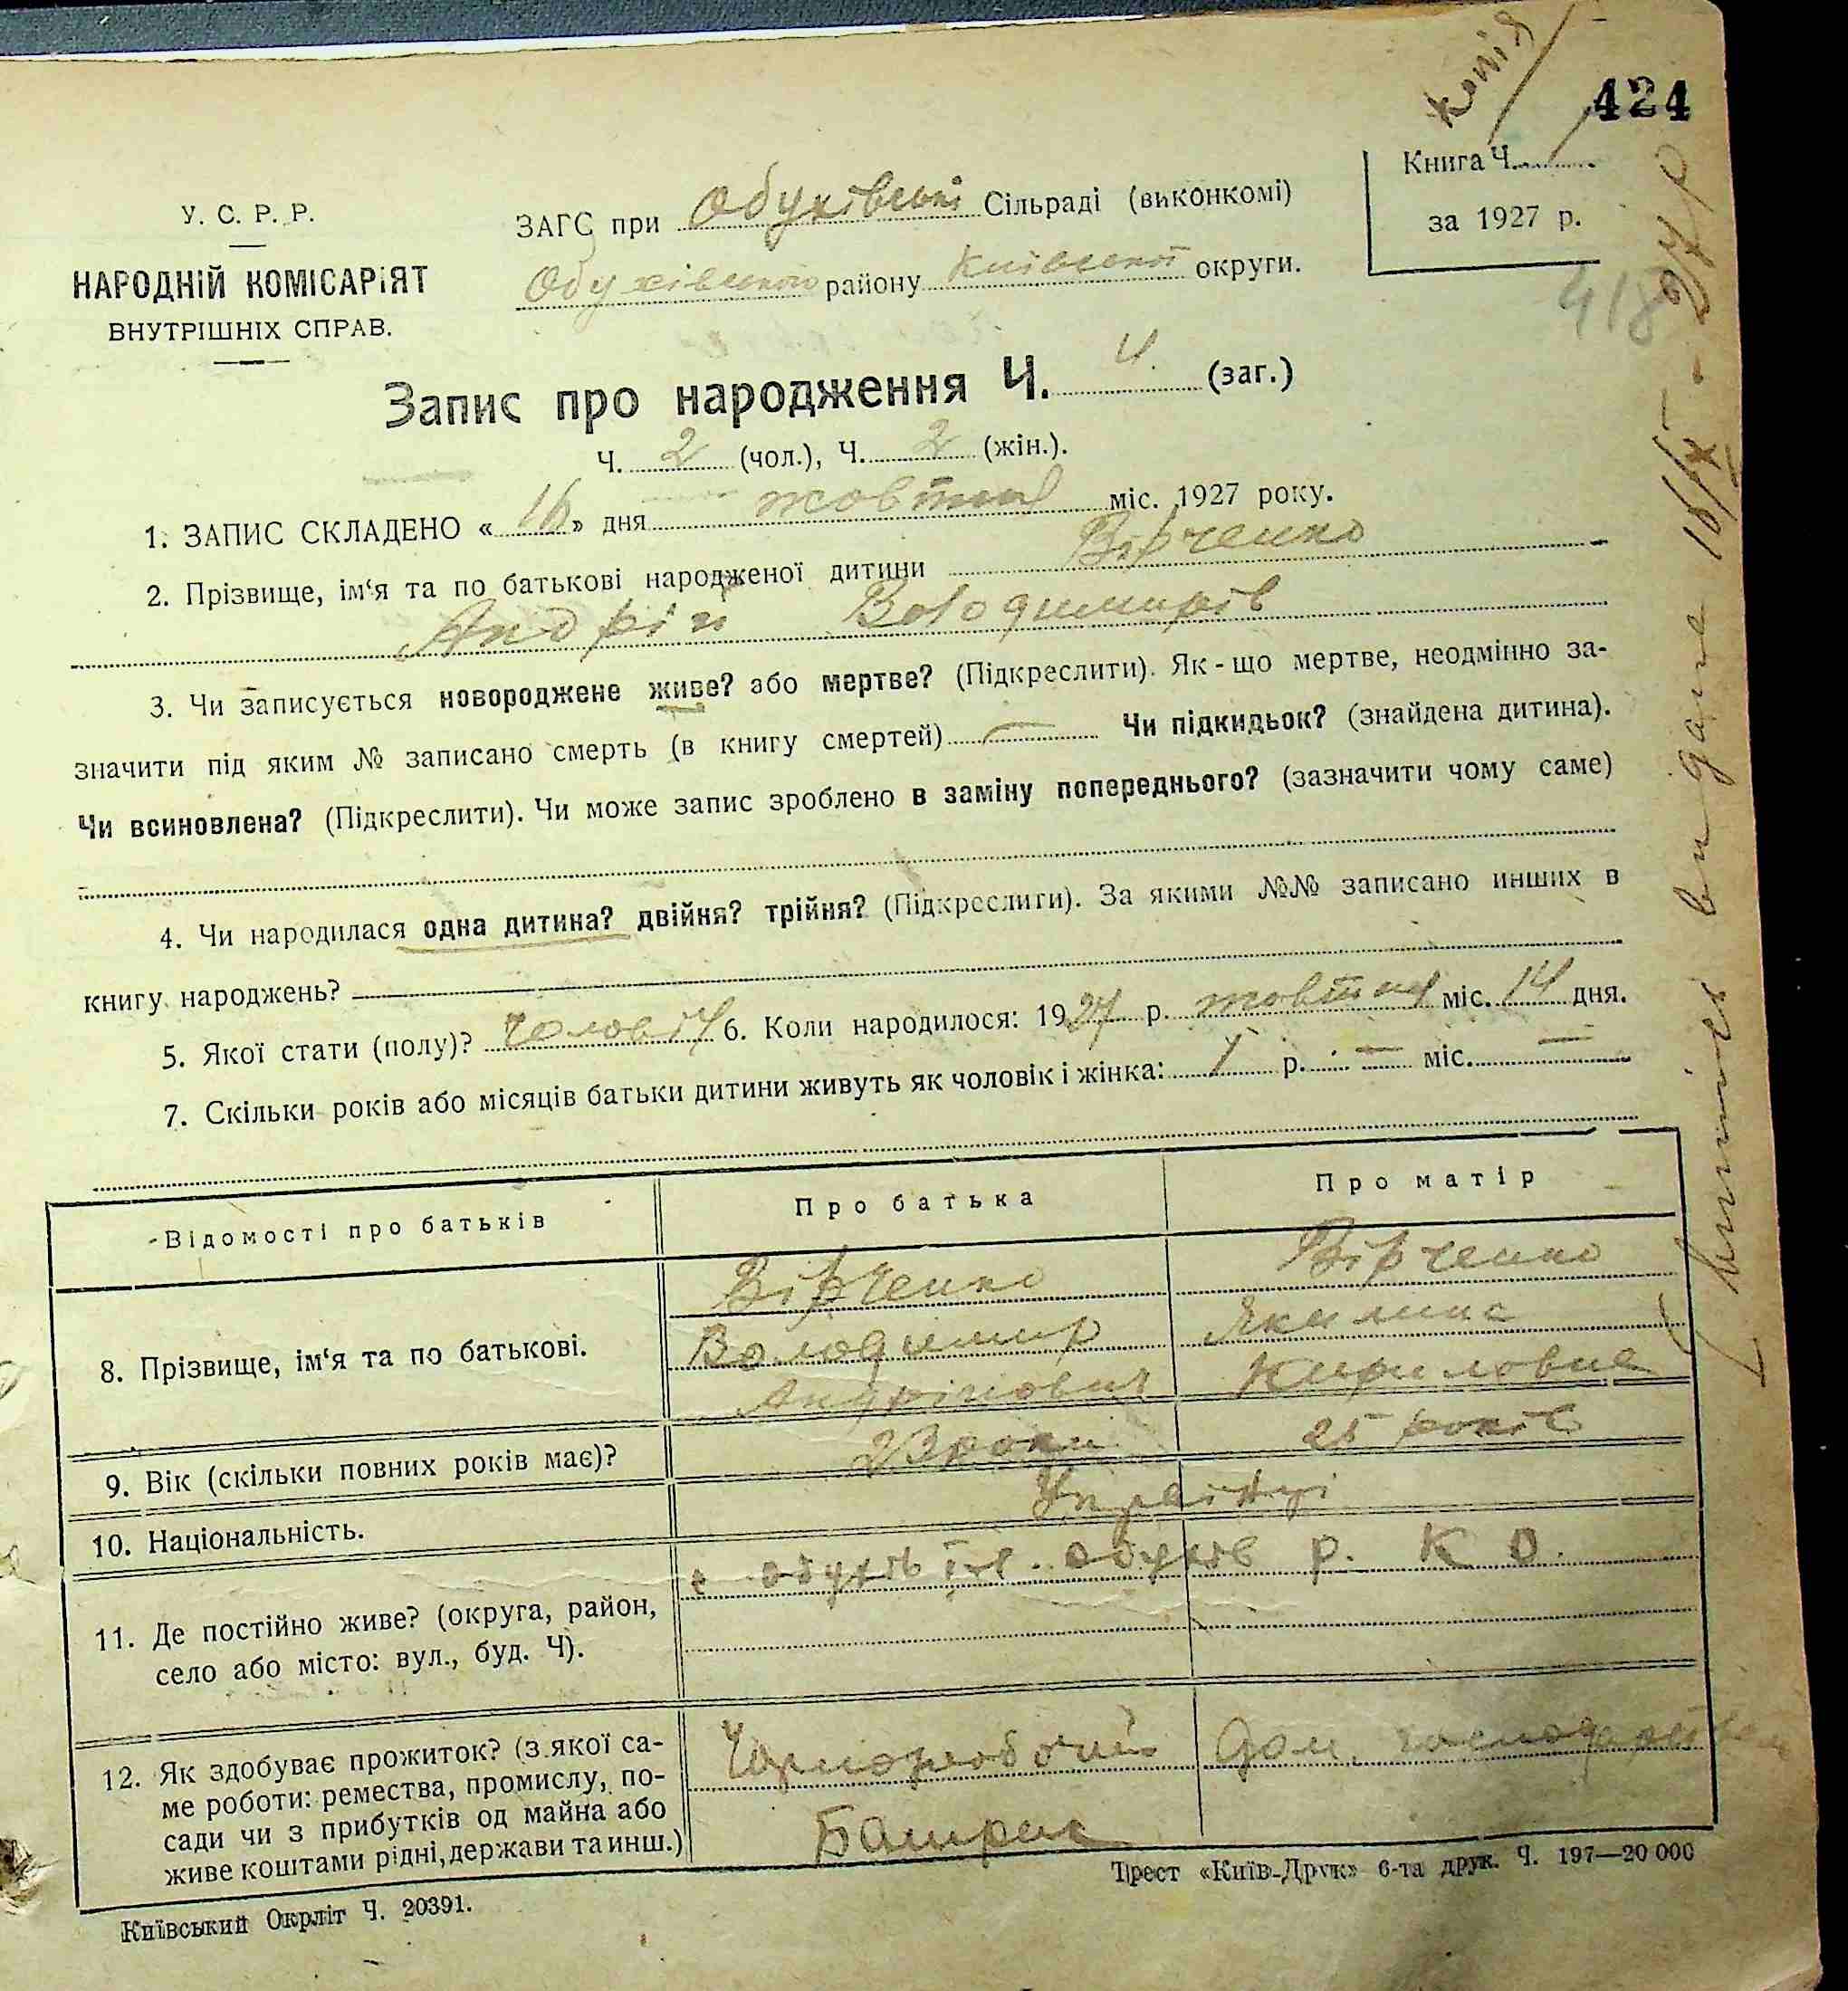 копія
424
Книга Ч.
за 1927 р.
418
У. С. Р. Р.
НАРОДНІЙ КОМІСАРІЯТ
ВНУТРІШНІХ СПРАВ.
ЗАГС при Обухівські Сільраді (виконкомі)
Обухівського району Київської округи.
Запис про народження Ч. 4. (заг.)
Ч. 2 (чол.), Ч. 2 (жін.).
1. ЗАПИС СКЛАДЕНО « 16 » дня жовтня міс. 1927 року.
2. Прізвище, ім‘я та по батькові народженої дитини Вірченко
Андрій Володимирів
3. Чи записується новороджене живе? або мертве? (Підкреслити). Як-що мертве, неодмінно за-
значити під яким № записано смерть (в книгу смертей) — Чи підкидьок? (знайдена дитина).
Чи всиновлена? (Підкреслити). Чи може запис зроблено в заміну попереднього? (зазначити чому саме)
4. Чи народилася одна дитина? двійня? трійня? (Підкреслити). За якими №№ записано инших в
книгу народжень?
5. Якої стати (полу)? Чоловіч 6. Коли народилося: 1927 р. жовтня міс. 14 дня.
7. Скільки років або місяців батьки дитини живуть як чоловік і жінка: 1 р. — міс. —
Відомості про батьків Про батька Про матір
8. Прізвище, ім‘я та по батькові.
Вірченко Вірченко
Володимир Якилина
Андрійович Кириловна
9. Вік (скільки повних років має)? 23 роки 25 років
10. Національність. Українці
11. Де постійно живе? (округа, район,
село або місто: вул., буд. Ч).
с Обухів Обухів р. К О.
12. Як здобуває прожиток? (з якої са-
ме роботи: ремества, промислу, по-
сади чи з прибутків од майна або
живе коштами рідні, держави та инш.)
Чорноробочий Дом.
Батрак
Київський Окрліт Ч. 20391.
Трест «Київ-Друк» 6-та друк. Ч. 197—20 000
видане 16/X - 27 р